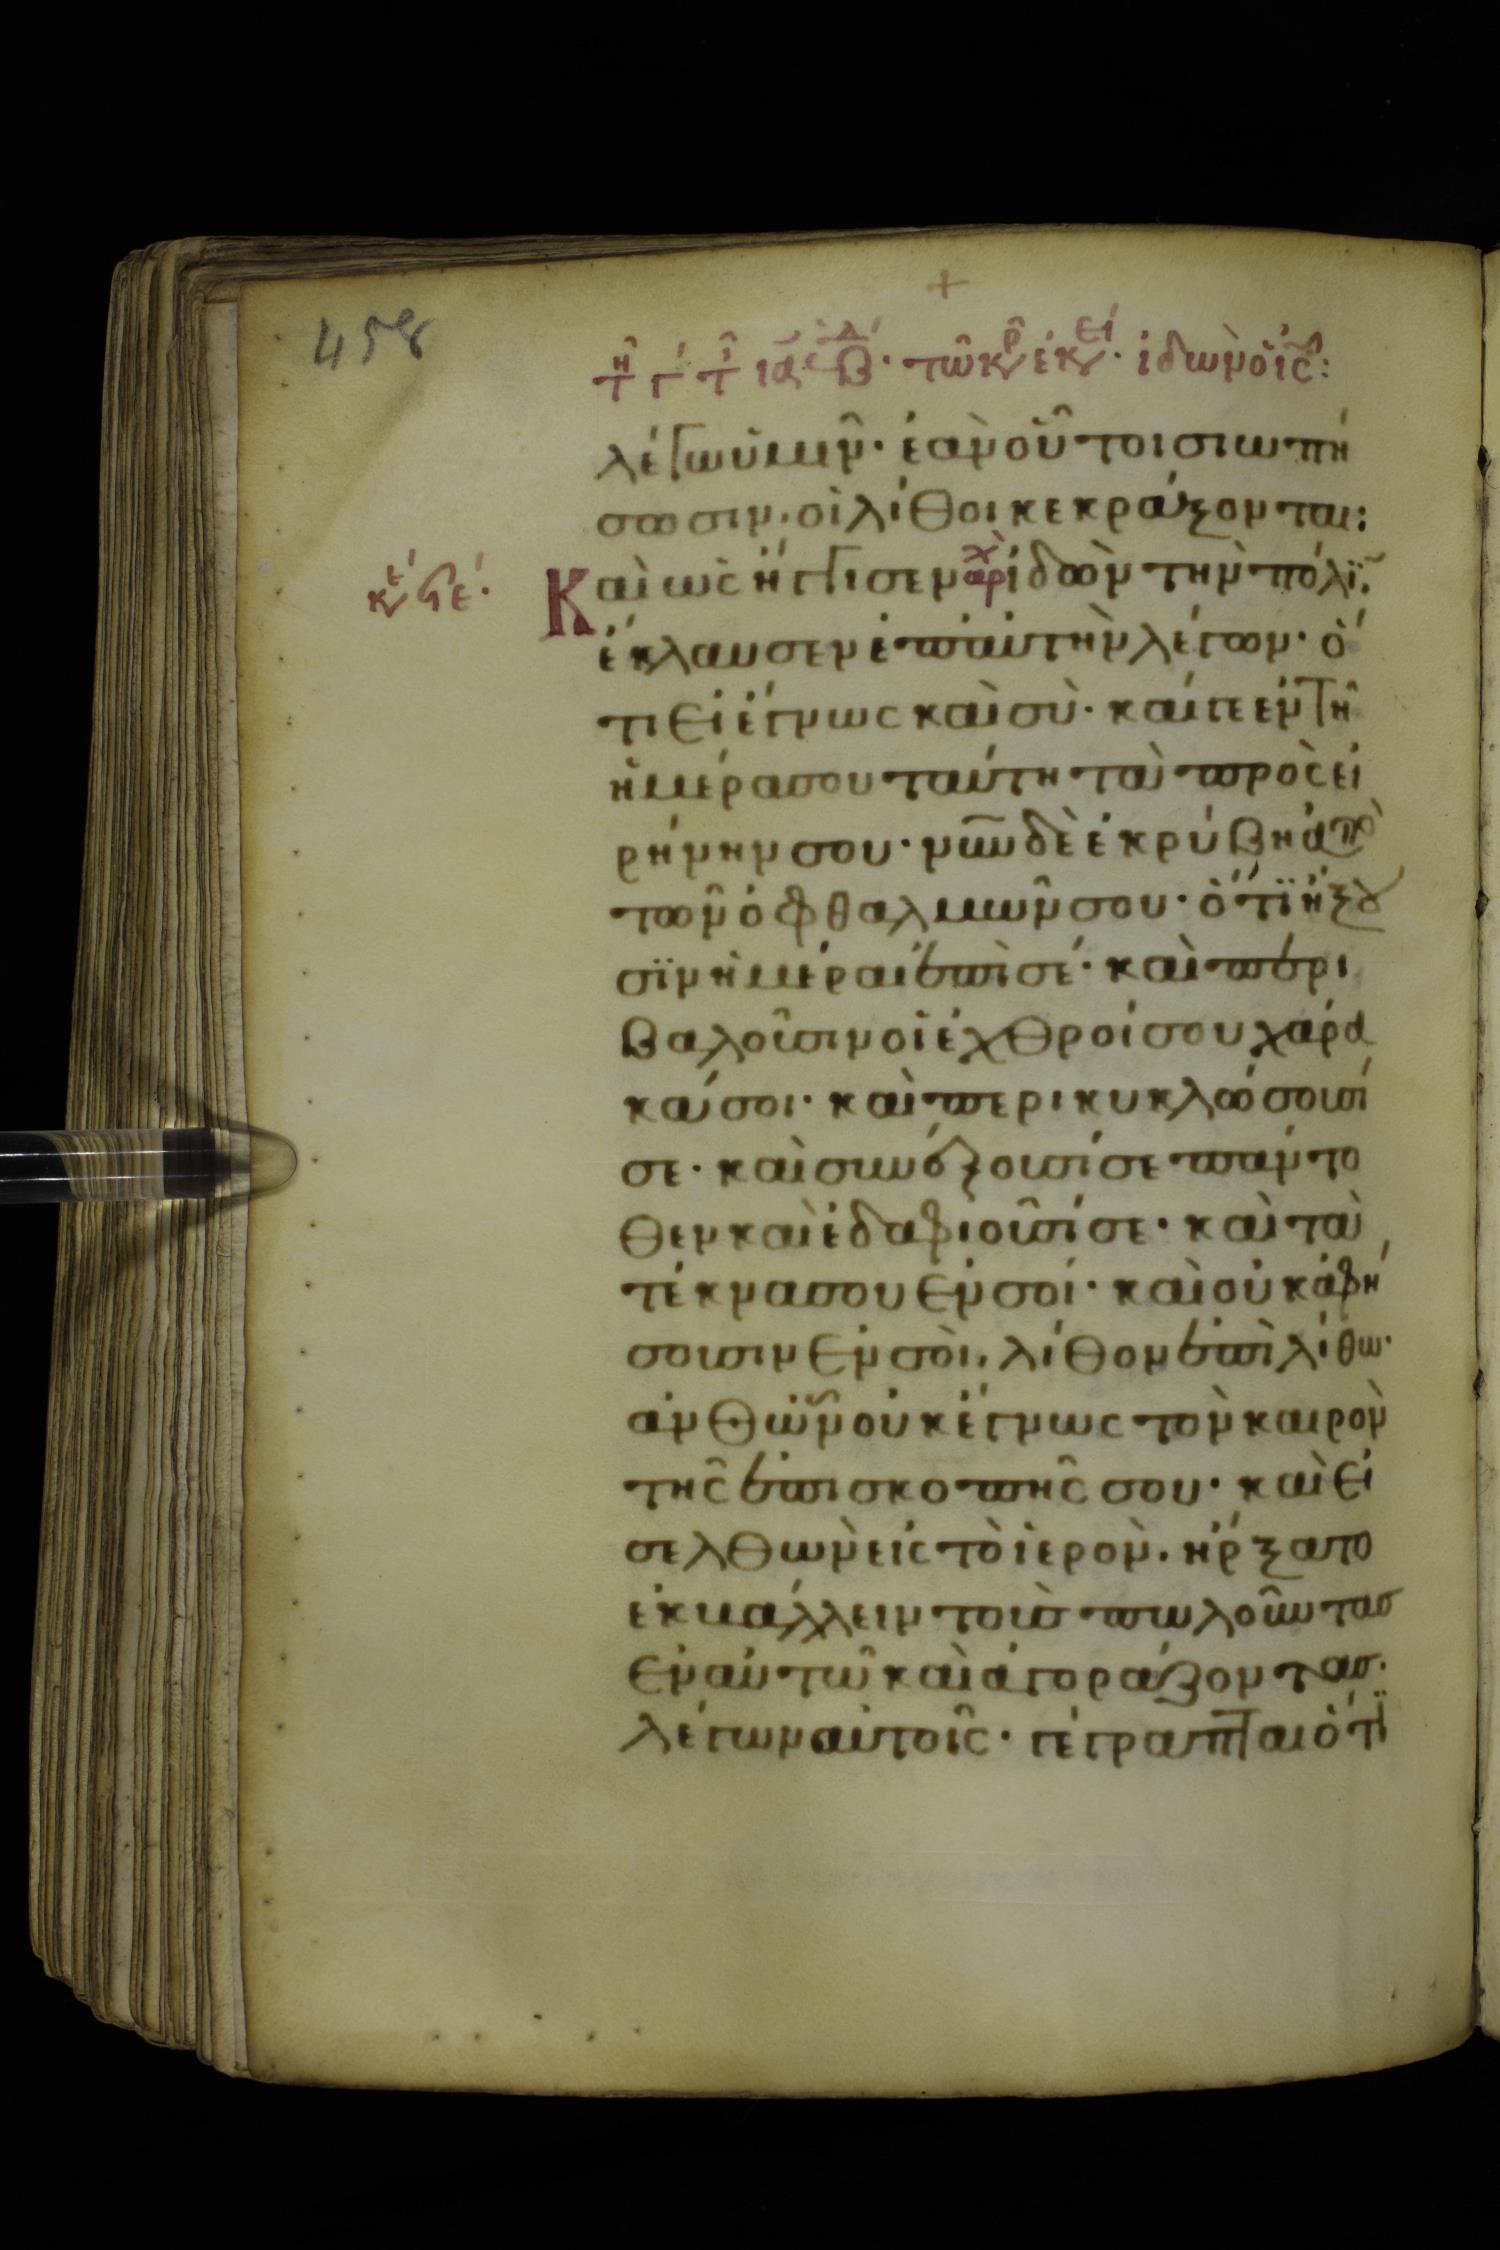 458
+
τῇ γ τ ια εβδ β· τῷ καιρῷ ἐκείνῳ· ἰδὼν ὁ ισ:
λέγω ὑμῖν· ἐὰν οὗτοι σιωπή
σωσιν, οἱ λίθοι κεκράξονται:
Καὶ ὡς ἤγγισεν αρχ ἰδὼν τὴν πόλϊν·
ἔκλαυσεν ἐπ' αὐτὴν λέγων· ὅ
τι εἰ ἔγνως καὶ σὺ· καίγε ἐν τῆ
ἡμέρα σου ταύτη τὰ πρὸς εἰ
ρήνην σου· νῦν δὲ ἐκρύβη ἀπὸ
τῶν ὀφθαλμῶν σου· ὅτϊ ἥξου
σϊν ἡμέραι ἐπὶ σέ· καὶ περι
βαλοῦσιν οἱ ἐχθροί σου χάρα
κά σοι· καὶ περικυκλώσουσί
σε· καὶ συνέξουσί σε πάντο
θεν καὶ ἐδαφιοῦσί σε· καὶ τὰ
τέκνα σου ἐν σοί· καὶ οὐκ ἀφή
σουσιν ἐν σοὶ, λίθον ἐπὶ λίθω·
ἀνθὧν οὐκ ἔγνως τὸν καιρὸν
τῆς ἐπισκοπῆς σου· καὶ εἰ
σελθὼν εἰς τὸ ἱερὸν, ἤρξατο
ἐκβάλλειν τοὺς πωλοῦντας
ἐν αὐτῶ καὶ ἀγοράζοντας·
λέγων αὐτοῖς· γέγραπται ὅτϊ